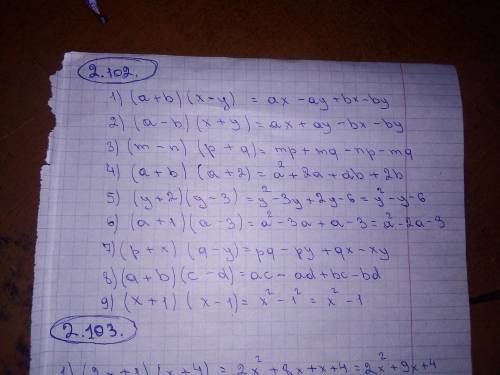 2.102.
1) (a+b) (x-y) = ax - ay + bx - by
2) (a-b) (x+y) = ax + ay - bx - by
3) (m-n) (p+q) = mp + mq - np - mq
4) (a+b) (a+2) = a² + 2a + ab + 2b
5) (y+2) (y-3) = y² - 3y + 2y - 6 = y² - y - 6
6) (a+1) (a-3) = a² - 3a + a - 3 = a² - 2a - 3
7) (p+x) (q-y) = pq - py + qx - xy
8) (a+b) (c-d) = ac - ad + bc - bd
9) (x+1) (x-1) = x² - 1² = x² - 1
2.103.
1) (2x+1) (x+4) = 2x² + 8x + x + 4 = 2x² + 9x + 4